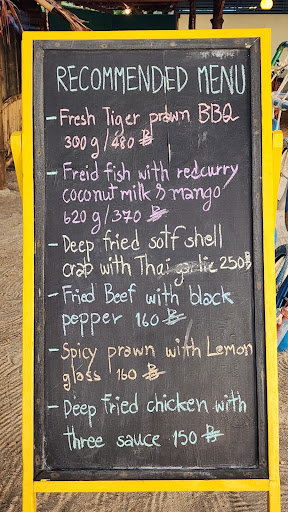 RECOMMENDED MENU
- Fresh Tiger prawn BBQ
300 g/480 ฿
- Freid fish with redcurry
coconut milk & mango
620 g/370 ฿
- Deep fried sotf shell
crap with Thai garlic 250฿
- Fried Beef with black
pepper 160 ฿
- Spicy prawn with Lemon
glass 160 ฿
- Deep fried chicken with
three sauce 150 ฿